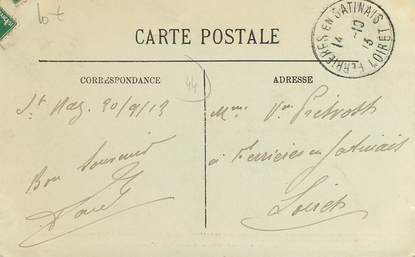 lot
CARTE POSTALE
CORRESPONDANCE
ADRESSE
44
FERRIERES EN GATINAIS
14 -10
13
LOIRET
St Naz. 20/9/13
Bon Souvenir
Mme Vve
à Ferrieres en Gatinais
Loiret